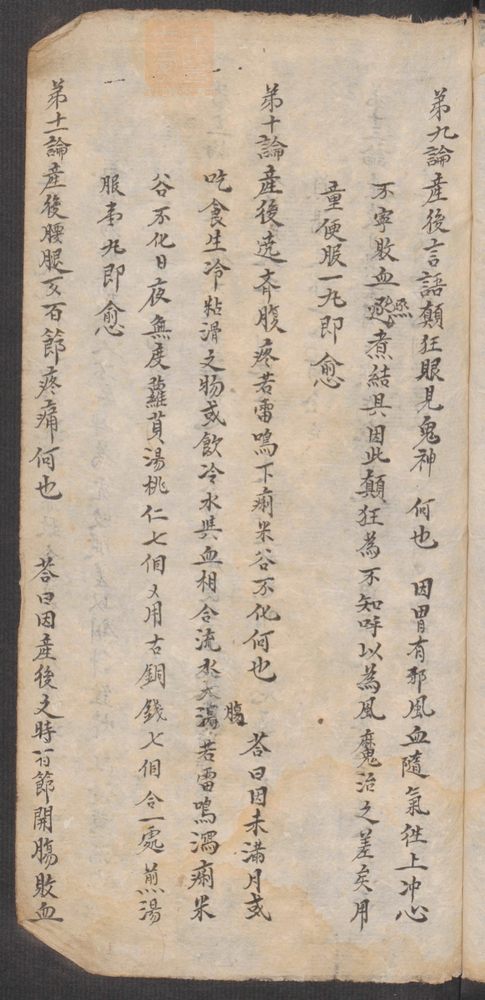 第九論産後言語顛狂眼見鬼神 何也 因胃有邪風血隨氣徃上冲心
不寧敗血 煮結具因此顛狂為不知呼以為風魔治之差矣用
童便服一丸即愈
第十論産後遶脐腹疼若雷鳴下痢米谷不化何也 荅曰因未滿月或
吃食生冷粘滑之物或飲冷水與血相合流水大腸 若雷鳴瀉痢米
谷不化日夜無度蘿蔔湯桃仁七個又用古銅錢七個合一處煎湯
服壹丸即愈
第十一論産後腰腿又百節疼痛何也 荅曰因産後之時百節開腸敗血